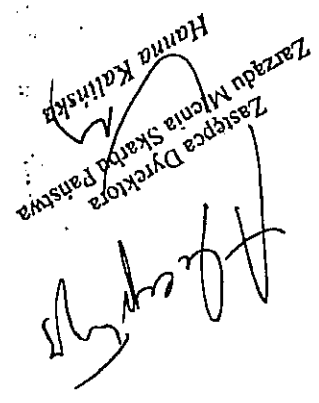 Zastępca Dyrektora
Zarządu Mienia Skarbu Państwa
Hanna Kalińska